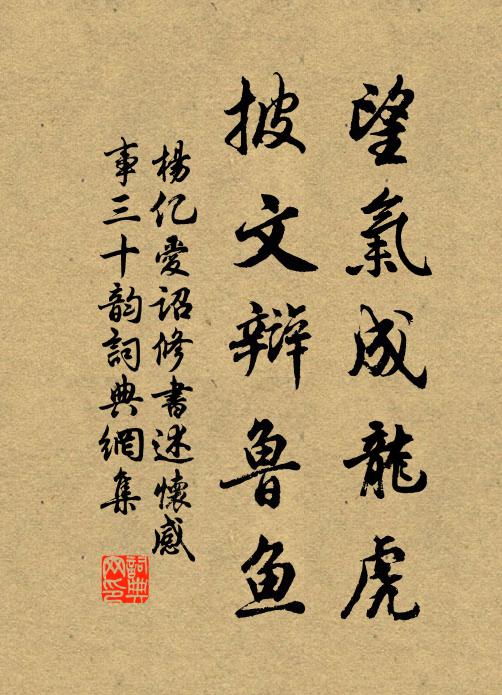 望氣成龍虎
披文辯魯鱼
楊亿愛詔修書述懷感
事三十韵詞典網集
詞典
网印